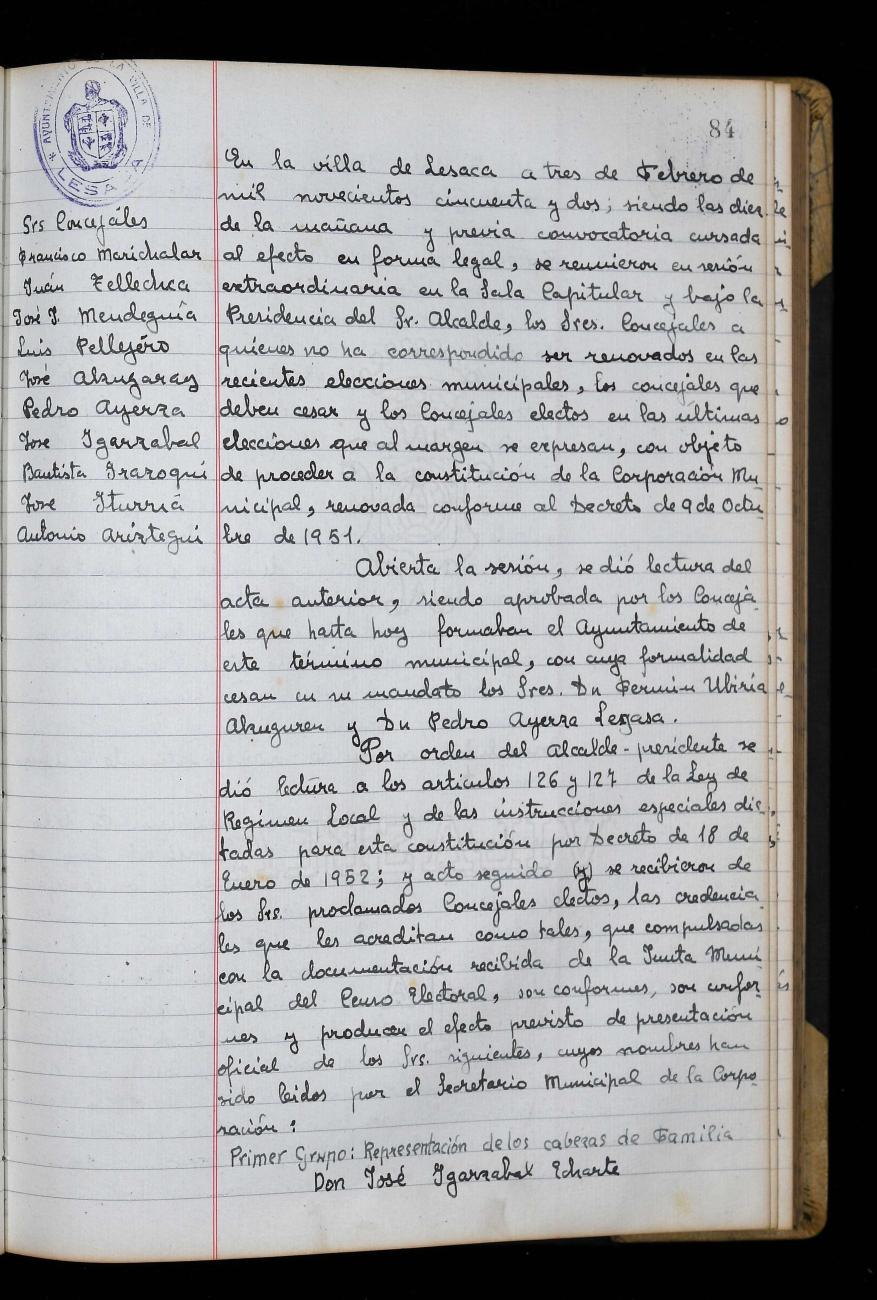 84
AYUNTAMIENTO DE LA VILLA DE
LESACA
Srs Concejáles
Francisco Marichalar
Juán Tellechea
José J. Mendeguía
Luis Pellejéro
José Alzugaray
Pedro Ayerza
Jose Igarzabal
Bautista Irazoqui
Jose Iturria
Antonio Ariztegui
En la villa de Lesaca a tres de Febrero de
mil novecientos cincuenta y dos; siendo las diez
de la mañana y previa convocatoria cursada
al efecto en forma legal, se reunieron en sesión
extraordinaria en la Sala Capitular y bajo la
Presidencia del Sr. Alcalde, los Sres. Concejales a
quienes no ha correspondido ser renovados en las
recientes elecciones municipales, los concejales que
deben cesar y los Concejales electos en las últimas
elecciones que al margen se expresan, con objeto
de proceder a la constitución de la Corporación Mu-
nicipal, renovada conforme al Decreto de 9 de Octu-
bre de 1951.
Abierta la sesión, se dió lectura del
acta anterior, siendo aprobada por los Concejá-
les que hasta hoy formaban el Ayuntamiento de
este término municipal, con cuya formalidad
cesan en su mandato los Sres. Dn Fermin Ubiria
Alzuguren y Dn Pedro Ayerza Legasa.
Por orden del alcalde-presidente se
dió lectura a los articulos 126 y 127 de la Ley de
Regimen Local y de las instrucciones especiales dic-
tadas para esta constitución por Decreto de 18 de
Enero de 1952; y acto seguido (y) se recibieron de
los Srs. proclamados Concejales electos, las credencia-
les que les acreditan como tales, que compulsadas
con la documentación recibida de la Junta Muni-
cipal del Censo Electoral, son conformes, son confor-
mes y producen el efecto previsto de presentación
oficial de los Srs. siguientes, cuyos nombres han
sido leidos por el Secretario Municipal de la Corpo-
ración:
Primer Grupo: Representación de los cabezas de Familia
Don José Igarzabal Echarte